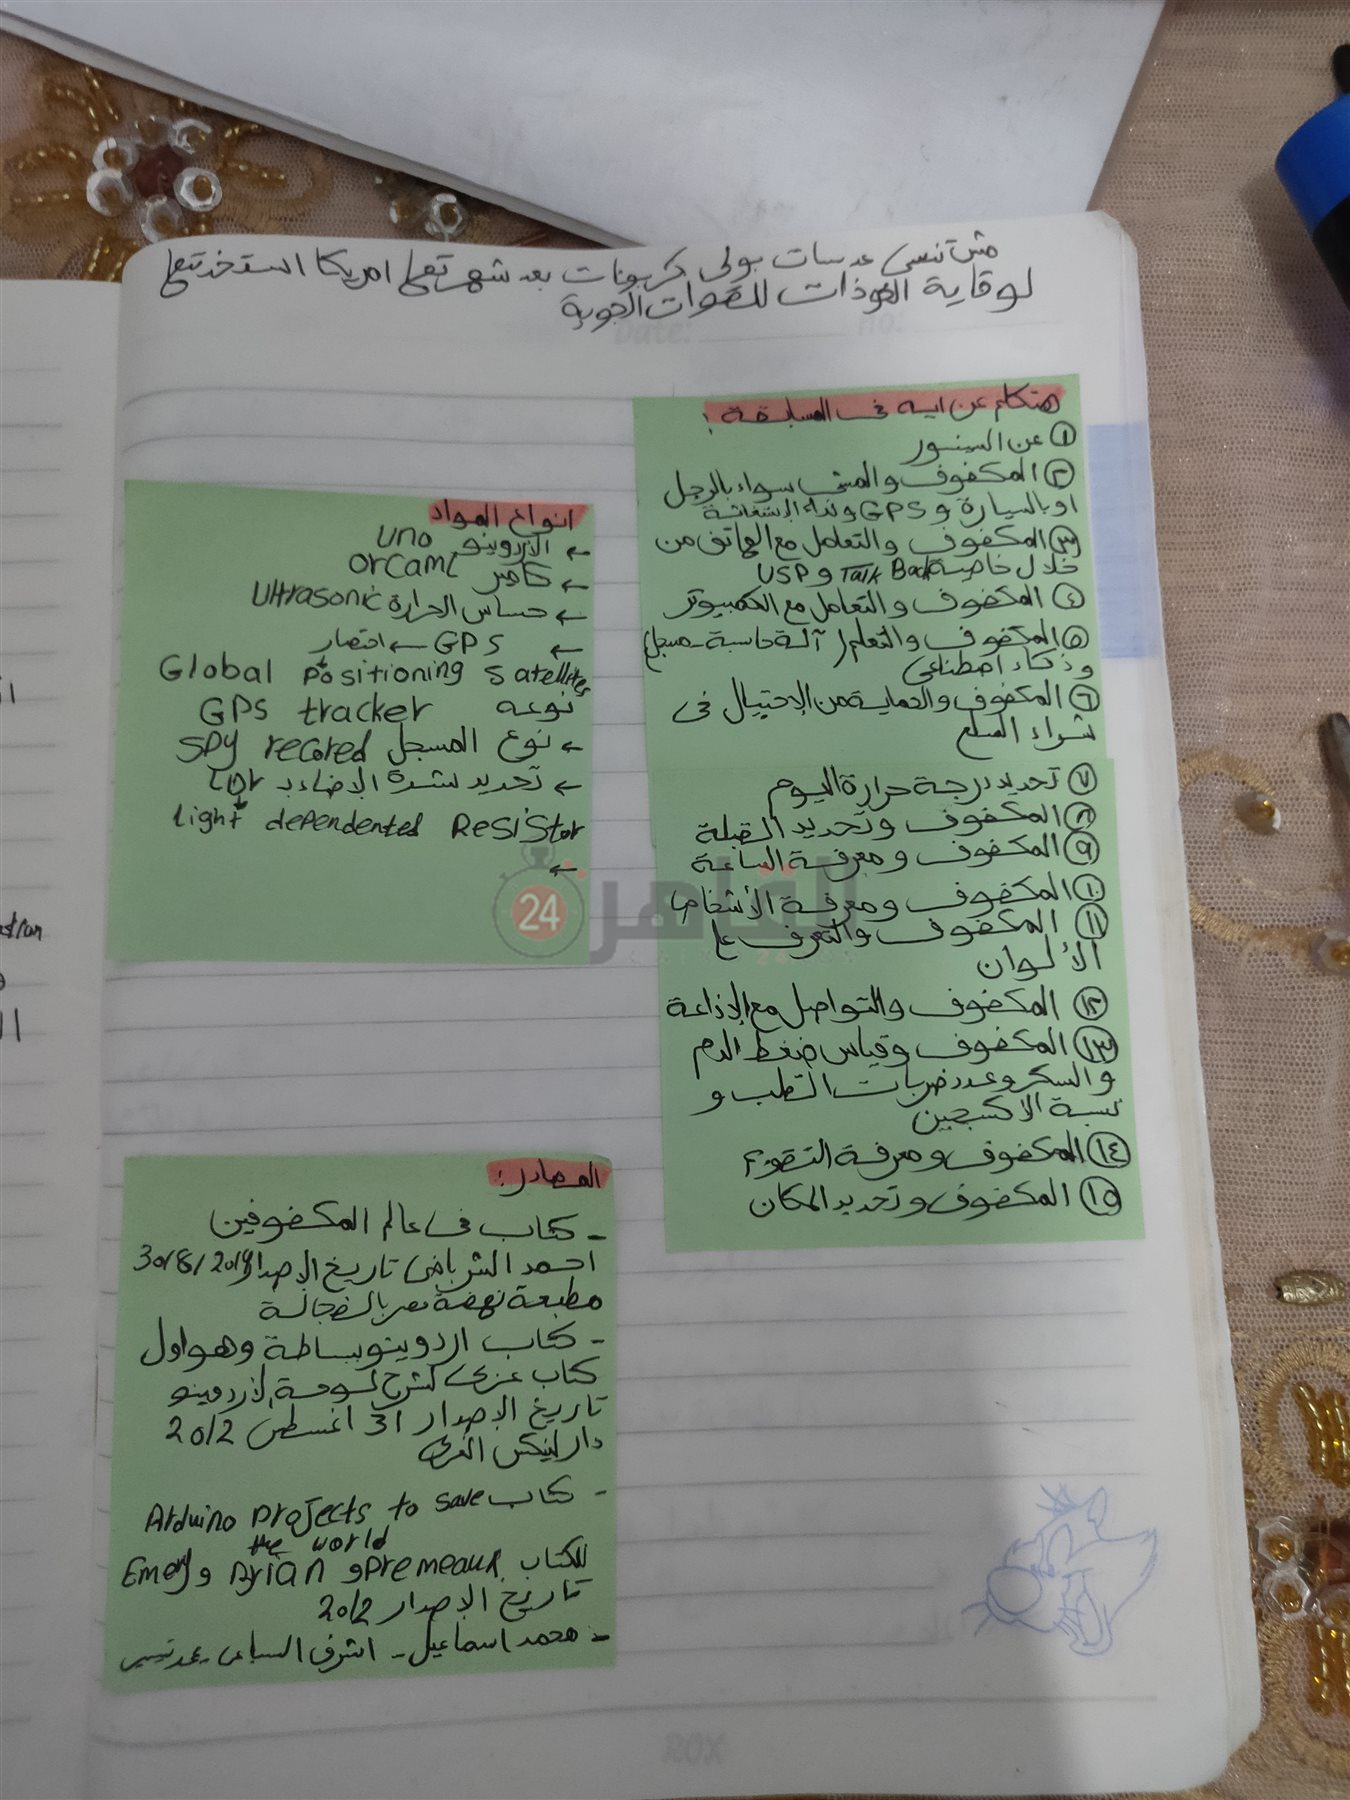 مش تنسى عدسات بولى كربونات بعد شهرتها امريكا استخدمتها
لوقاية الخوذات للقوات الجوية
هتكلم عن ايه فى المسابقة :
١ عن السينسور
٢ المكفوف والمشى سواء بالرجل
او بالسيارة و GPS ونداء الإستغاثة
٣ المكفوف والتعامل مع الهاتف من
خلال خاصية Talk Back و USP
٤ المكفوف والتعامل مع الكمبيوتر
٥ المكفوف والتعلم ( آلة حاسبة - مسجل )
وذكاء اصطناعى
٦ المكفوف والحماية من الإحتيال فى
شراء السلع
٧ تحديد درجة حرارة اليوم
٨ المكفوف وتحديد القبلة
٩ المكفوف ومعرفة الساعة
١٠ المكفوف ومعرفة الأشخاص
١١ المكفوف والتعرف على
الألوان
١٢ المكفوف والتواصل مع الإذاعة
١٣ المكفوف وقياس ضغط الدم
والسكر وعدد ضربات القلب و
نسبة الاكسجين
١٤ المكفوف ومعرفة التقويم
١٥ المكفوف وتحديد المكان
انواع المواد
← الأردوينو uno
← كامير orcamL
← حساس الحرارة Ultrasonic
← GPS ← اختصار
Global Positioning Satellites
نوعه GPS tracker
← نوع المسجل SPY recored
← تحديد شدة الإضاءة بـ LDR
Light dependented Resistor
←
القاهرة 24
المصادر :
- كتاب فى عالم المكفوفين
احمد الشرباصى تاريخ الإصدار
مطبعة نهضة مصر بالفجالة
- كتاب اردوينو ببساطة وهو اول
كتاب عربى لشرح لوحة الأردوينو
تاريخ الإصدار 31 اغسطس 2012
دار لينكس العربى
- كتاب Arduino Projects to save
the world
للكتاب Premeaux و Brian و Emery
تاريخ الإصدار 2012
- محمد اسماعيل - اشرف السباعى -